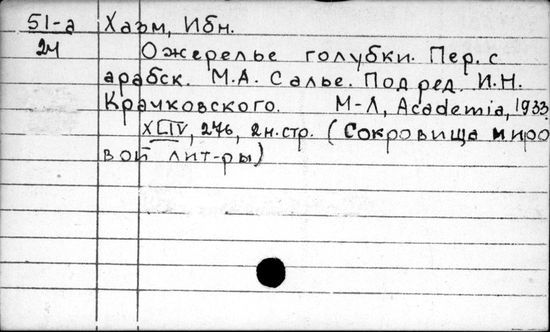 51-а Хазм, Ибн.
24 Ожерелье голубки. Пер. с
арабск. М.А. Салье. Под ред. И.Н.
Крачковского. М-Л, Academia, 1933.
XLIV, 276, 2н.стр. (Сокровища миро
вой лит-ры)